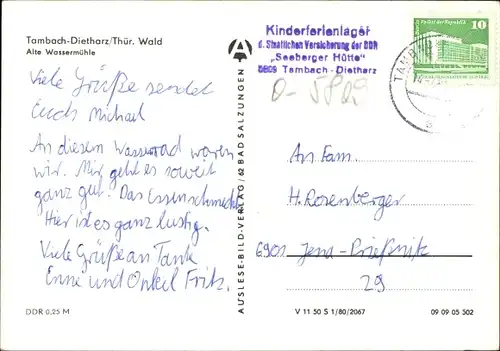 Tambach-Dietharz/Thür. Wald
Alte Wassermühle
Viele Grüße sendet
Euch Michael
An diesem Wasserrad waren
wir. Mir geht es soweit
ganz gut. Das Essen schmeckt
Hier ist es ganz lustig.
Viele Grüße an Tante
Enne und Onkel Fritz.
DDR 0,25 M
AUSLESE-BILD-VERLAG/62 BAD SALZUNGEN
Kinderferienlager
d. Staatlichen Versicherung der DDR
„Seeberger Hütte"
5809 Tambach-Dietharz
0-5809
Palast der Republik
10
TAMB
An Fam.
H. Rosenberger
6901 Jena-Prießnitz
29
V 11 50 S 1/80/2067
09 09 05 502